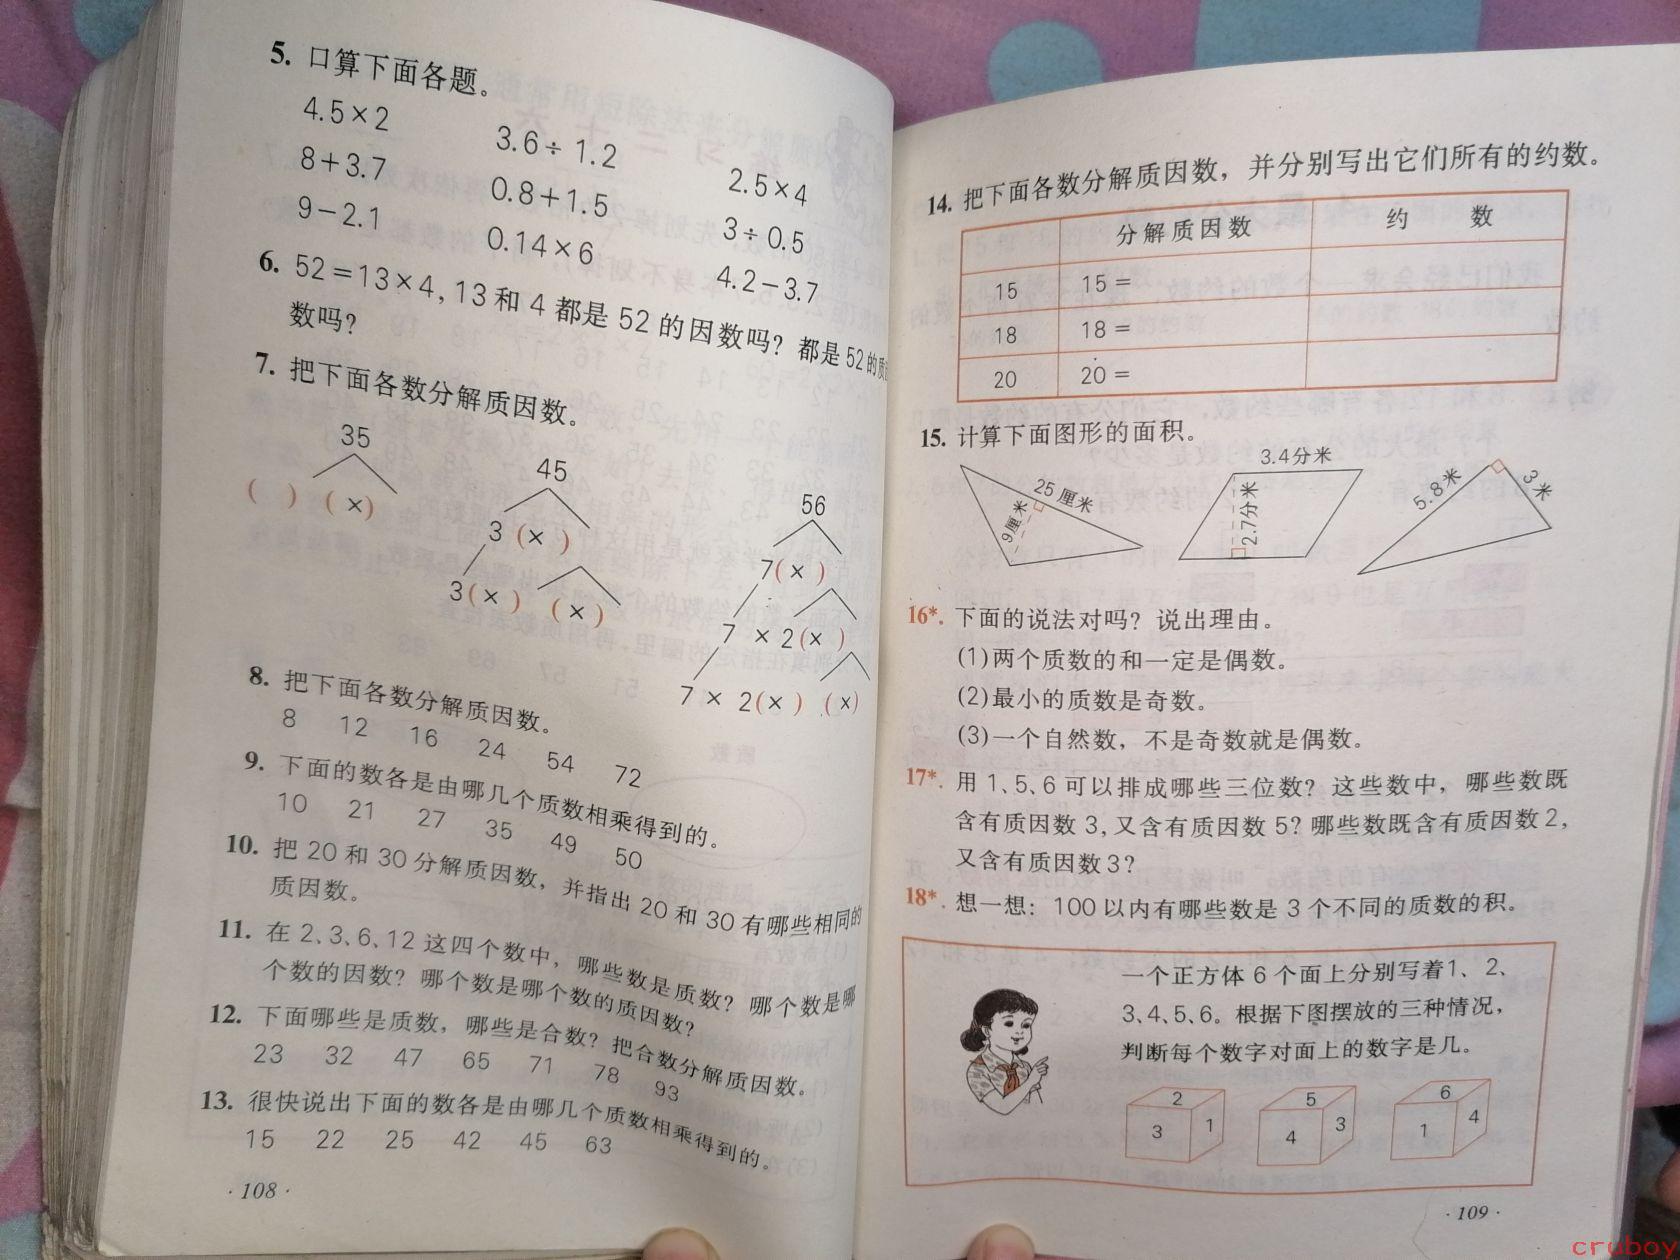 5. 口算下面各题。
4.5×2 3.6÷1.2 2.5×4
8+3.7 0.8+1.5 3÷0.5
9-2.1 0.14×6 4.2-3.7
6. 52=13×4,13和4都是52的因数吗?都是52的质
数吗?
7. 把下面各数分解质因数。
35 45 56
( ) (×) 3 (× ) 7(× )
3(× ) (× ) 7 ×2(× )
7 × 2(× ) (×)
8. 把下面各数分解质因数。
8 12 16 24 54 72
9. 下面的数各是由哪几个质数相乘得到的。
10 21 27 35 49 50
10. 把20和30分解质因数,并指出20和30有哪些相同的
质因数。
11. 在2、3、6、12这四个数中,哪些数是质数?哪个数是哪
个数的因数?哪个数是哪个数的质因数?
12. 下面哪些是质数,哪些是合数?把合数分解质因数。
23 32 47 65 71 78 93
13. 很快说出下面的数各是由哪几个质数相乘得到的。
15 22 25 42 45 63
·108·
14. 把下面各数分解质因数,并分别写出它们所有的约数。
分解质因数 约 数
15 15=
18 18=
20 20=
15. 计算下面图形的面积。
25厘米 9厘米 3.4分米 2.7分米 5.8米 3米
16*. 下面的说法对吗?说出理由。
(1)两个质数的和一定是偶数。
(2)最小的质数是奇数。
(3)一个自然数,不是奇数就是偶数。
17*. 用1、5、6可以排成哪些三位数?这些数中,哪些数既
含有质因数3,又含有质因数5?哪些数既含有质因数2,
又含有质因数3?
18*. 想一想:100以内有哪些数是3个不同的质数的积。
一个正方体6个面上分别写着1、2、
3、4、5、6。根据下图摆放的三种情况,
判断每个数字对面上的数字是几。
2 5 6
3 1 4 3 1 4
·109·
cruboy